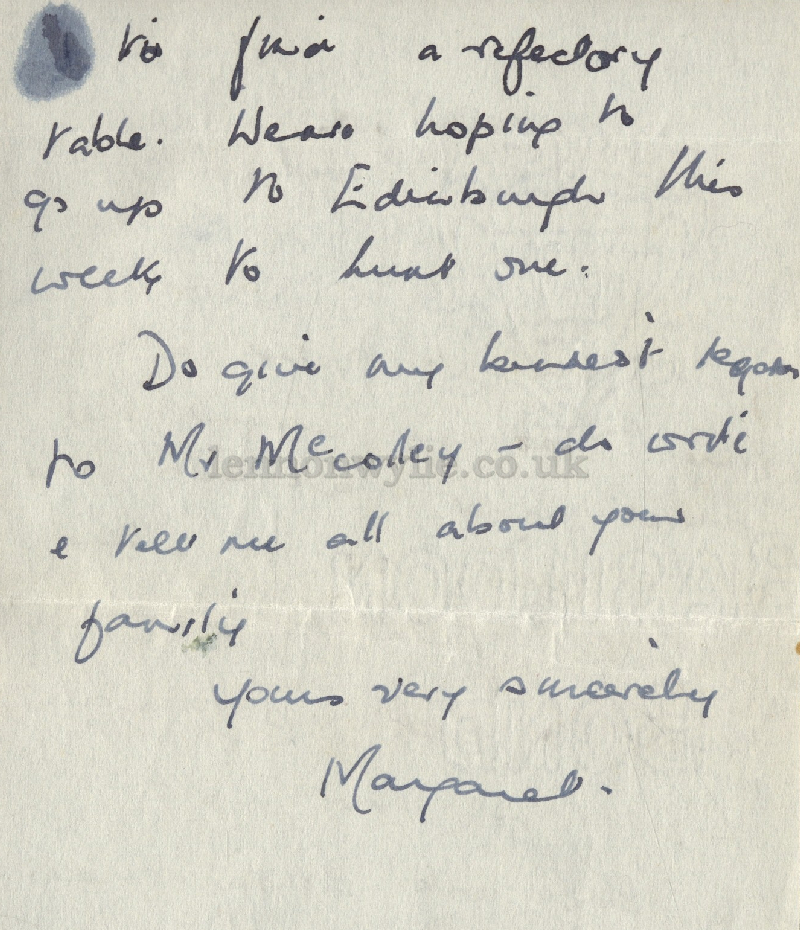 to find a refectory
table. We are hoping to
go up to Edinburgh this
week to hunt one.
Do give my kindest regards
to Mr McColley - do write
lennonwylie.co.uk
& tell me all about your
family
Yours very sincerely
Margaret.